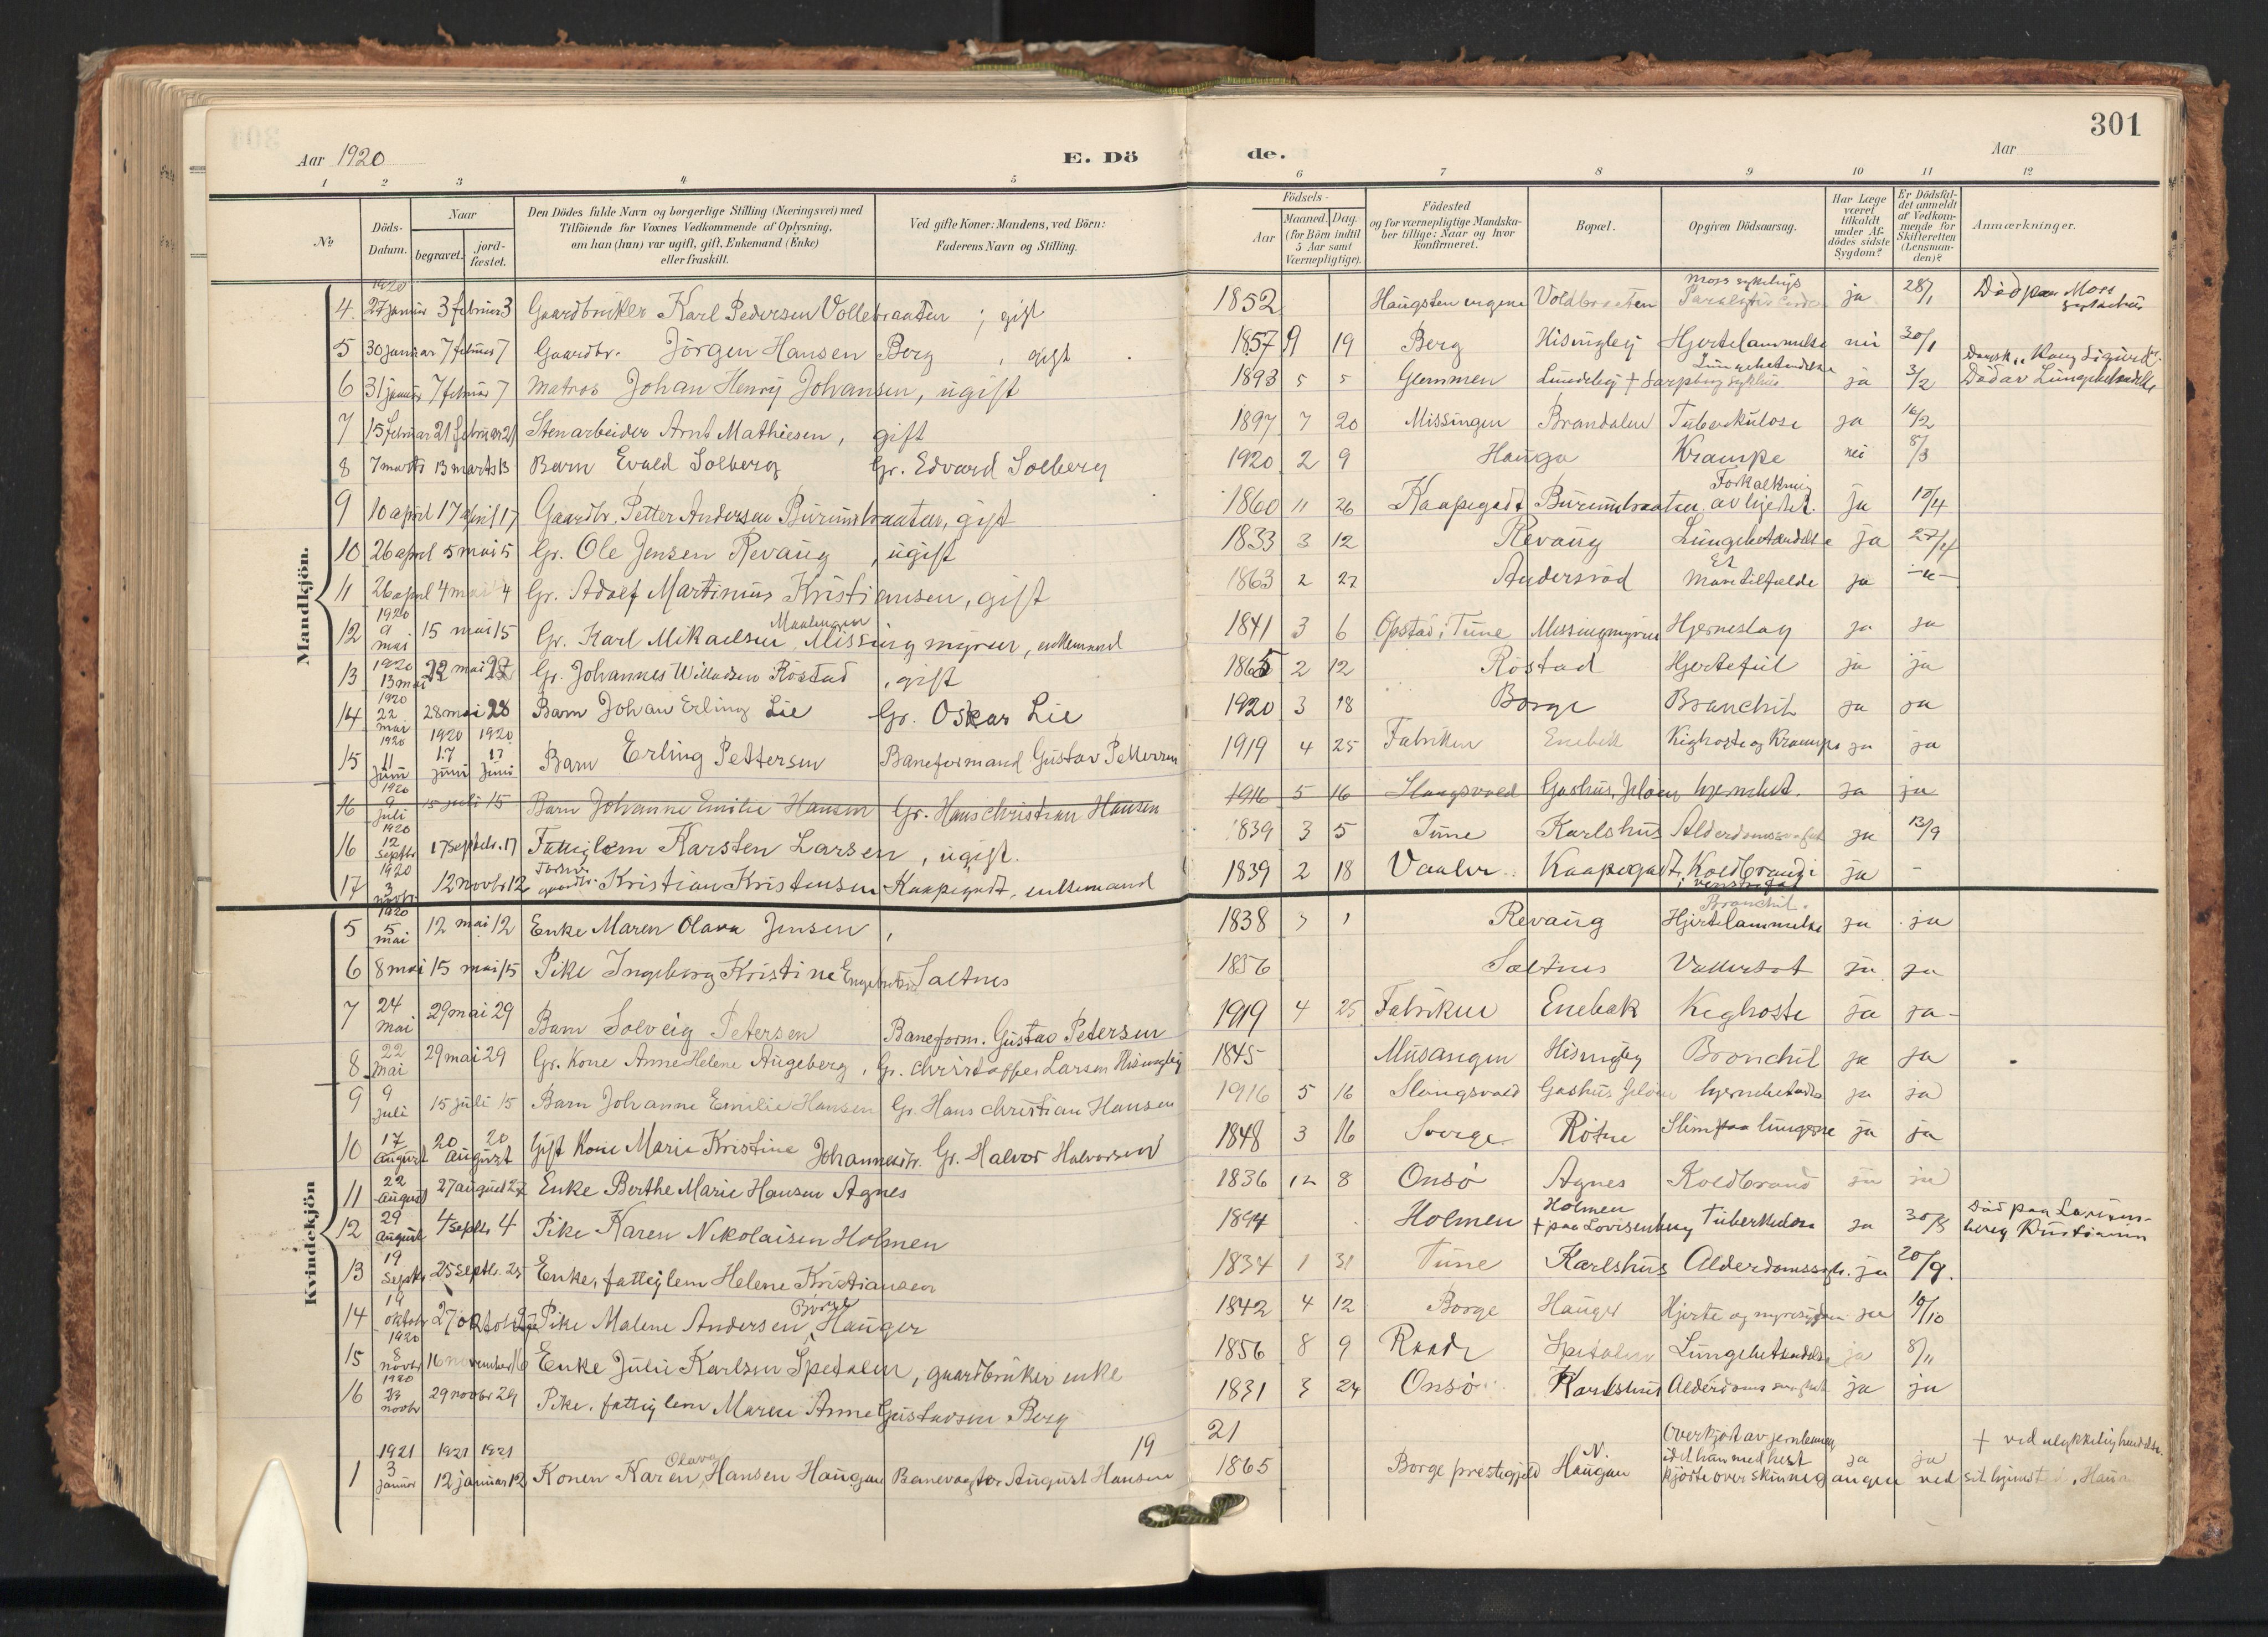 301
Aar 1920 E. Dö de. Aar
1 2 3 4 5 6 7 8 9 10 11 12
No
Döds-Datum.
Naar
begravet.
jord-fæstet.
Den Dödes fulde Navn og borgerlige Stilling (Næringsvei) med
Tilföiende for Voxnes Vedkommende af Oplysning,
om han (hun) var ugift, gift, Enkemand (Enke)
eller fraskilt.
Ved gifte Koner: Mandens, ved Börn:
Faderens Navn og Stilling.
Födsels-
Aar
Maaned. Dag.
(for Börn indtil
5 Aar samt
Værnepligtige).
Födested
og for værnepligtige Mandska-
ber tillige: Naar og hvor
konfirmeret.
Bopæl.
Opgiven Dödsaarsag.
Har Læge
været
tilkaldt
under Af-
dödes sidste
Sygdom?
Er Dödsfal-
det anmeldt
af Vedkom-
mende for
Skifteretten
(Lensman-
den)?
Anmærkninger.
Mandkjön.
4 1920 27 januar 3 februar 3 Gaardbruker Karl Pedersen Vollebraaten, gift 1852 Haugsten engene Voldbraaten Moss sykehus ja 28/1 Död paa Moss
5 30 januar 7 februar 7 Gaardbr. Jörgen Hansen Berg, gift 1857 9 19 Berg Hisingby Hjertelammelse nei 30/1
6 31 januar 7 februar 7 Matros Johan Henry Johansen, ugift 1893 5 5 Glemmen Lundeby + Sarpsborg sykehus Lungebetændelse ja 3/2 Död av Lungebetændelse
7 15 februar 21 februar 21 Stenarbeider Arnt Mathiesen, gift 1897 7 20 Missingen Brandalen Tuberkulose ja 16/2
8 7 marts 13 marts 13 Barn Evald Solberg Gr. Edvard Solberg 1920 2 9 Hauga Krampe nei 8/3
9 10 april 17 april 17 Gaardbr. Petter Andersen Burumbraaten, gift 1860 11 26 Kaapegadt Burumbraaten Forkalkning av hjertet. ja 12/4
10 26 april 5 mai 5 Gr. Ole Jensen Revaug, ugift 1833 3 12 Revaug Lungebetændelse ja 27/4
11 26 april 4 mai 4 Gr. Adolf Martinius Kristiansen, gift 1863 2 27 Andersröd Et Mavetilfælde ja -"-
12 1920 9 mai 15 mai 15 Gr. Karl Mikaelsen Missingmyren, enkemand 1841 3 6 Opstad i Tune Missingmyren Hjerneslag ja ja
13 1920 13 mai 22 mai Gr. Johannes Willadsen Röstad, gift 1865 2 12 Röstad Hjertefeil ja ja
14 1920 22 mai 28 mai 28 Barn Johan Erling Lie Gr. Oskar Lie 1920 3 18 Borge Bronchit ja ja
15 1920 11 juni 1920 17 juni 1920 17 juni Barn Erling Pettersen Baneformand Gustav Pettersen 1919 4 25 Fabriken Enebek Kighoste og Krampe ja ja
16 1920 9 juli 15 juli 15 Barn Johanne Emilie Hansen Gr. Hans Christian Hansen 1916 5 16 Slangsvold Gashus, Jelöen hjernebet. ja ja
16 1920 12 septbr 17 septbr. 17 Fattiglem Karsten Larsen, ugift. 1839 3 5 Tune Karlshus Alderdomssvaghet ja 13/9
17 1920 3 novbr 12 novbr 12 Forhv. gaardbr. Kristian Kristensen Kaapegadt, enkemand 1839 2 18 Vaaler Kaapegadt Koldbrand i venstre fot ja -
Kvindekjön
5 1920 5 mai 12 mai 12 Enke Maren Olava Jensen, 1838 3 1 Revaug Bronchit. Hjertelammelse ja ja
6 8 mai 15 mai 15 Pike Ingeborg Kristine Engebretsen Saltnes 1856 Saltnes Vattersot ja ja
7 24 mai 29 mai 29 Barn Solveig Petersen Baneform. Gustav Petersen 1919 4 25 Fabriken Enebek Kighoste ja ja
8 22 mai 29 mai 29 Gr. Kone Anne Helene Augeberg, Gr. Christoffer Larsen Hisingby 1845 Musangen Hisingby Bronchit ja ja
9 9 juli 15 juli 15 Barn Johanne Emilie Hansen Gr. Hans Christian Hansen 1916 5 16 Slangsvold Gashus Jelöen hjernebetændelse ja ja
10 17 august 20 august 20 Gift Kone Marie Kristine Johannesdtr. Gr. Halvor Halvorsen 1848 3 16 Sverge Rötne Slim paa lungerne ja ja
11 22 august 27 august 27 Enke Berthe Marie Hansen Agnes 1836 12 8 Onsö Agnes Koldbrand ja ja
12 29 august 4 septbr 4 Pike Karen Nikolaisen Holmen 1894 Holmen Holmen + paa Lovisenberg Tuberkulose ja 30/8 Död paa Lovisenberg Kristiania
13 19 septbr 25 septbr. 25 Enke, fattiglem Helene Kristiansen 1834 1 31 Tune Karlshus Alderdomssvgh. ja 20/9.
14 19 oktobr 27 oktobr 27 Pike Malene Andersen Borge Hauger 1842 4 12 Borge Hauger Hjerte og nyresygdom ja 19/10
15 1920 8 novbr 16 november 16 Enke Julie Karlsen Spetalen, gaardbruker enke 1856 8 9 Raade Spetalen Lungebetændelse ja 8/11
16 1920 23 novbr 29 novbr 29 Pike, fattiglem Maren Anne Gustavsen Berg 1831 3 24 Onsö Karlshus Alderdoms svaghet ja ja
19 21
1 1921 3 januar 1921 12 januar 1921 12 Konen Karen Olava Hansen Haugan Banevogter August Hansen 1865 Borge prestegjeld N. Haugan Overkjört av jernbanen, idet han med hest kjörte over skinnegangen ved sit hjemsted, Hauga ja ja + ved ulykkelig hændelse.